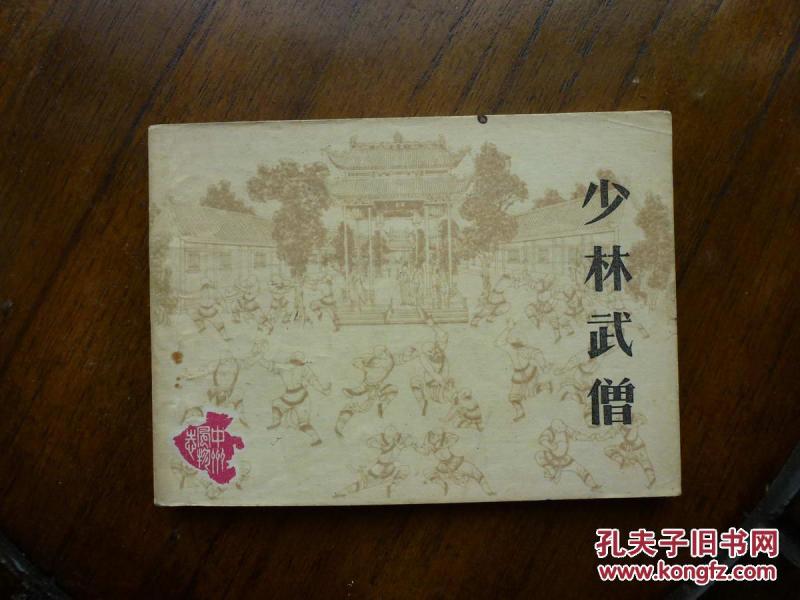 少林武僧
中州
风物
志
孔夫子旧书网
www.kongfz.com